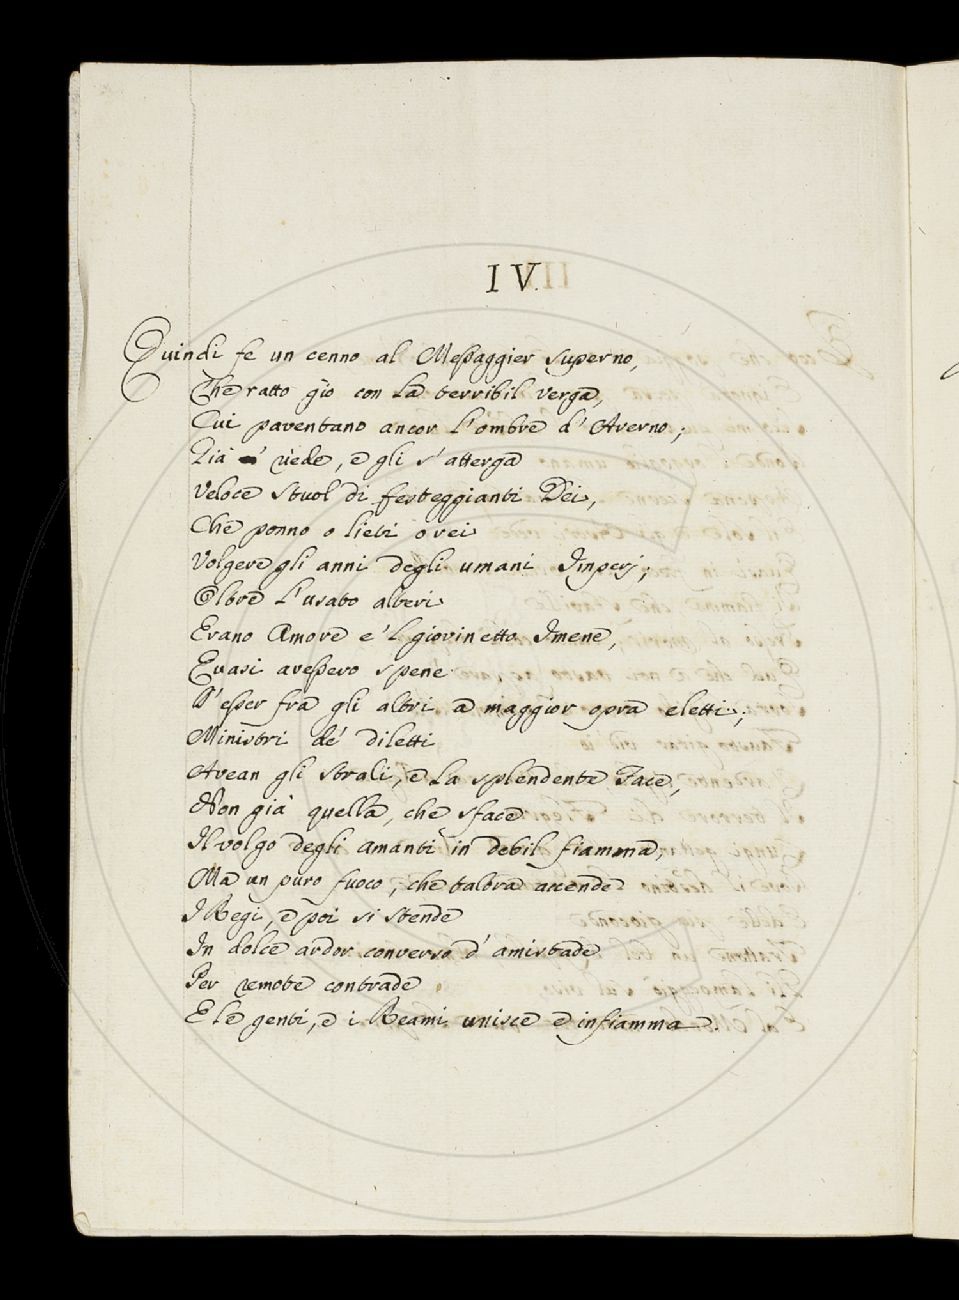 IV.
Quindi fe un cenno al Messaggier superno,
Che ratto gìo con la terribil verga,
Cui paventano ancor l'ombre d'Averno;
Già riede, e gli s'atterga
Veloce stuol di festeggianti Dei,
Che ponno o lieti o rei
Volgere gli anni degli umani Imperj;
Oltre l'usato alteri
Erano Amore e'l giovinetto Imene,
Quasi avessero spene
D'esser fra gli altri a maggior opra eletti;
Ministri de' diletti
Avean gli strali, e la splendente Face,
Non già quella, che sface
Il volgo degli amanti in debil fiamma,
Ma un puro fuoco, che talora accende
I Regi, e poi si stende
In dolce ardor converso d'amistade
Per remote contrade
E le genti, e i Reami unisce e infiamma.